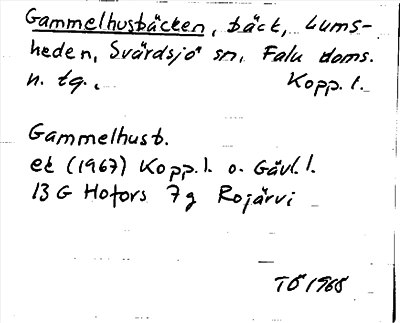 Gammelhusbäcken, bäck, Lums-
heden, Svärdsjö sn, Falu doms.
n. tg., Kopp. l.
Gammelhusb.
ek (1967) Kopp. l. o. Gävl. l.
13 G Hofors 7 g Rojärvi
TÖ 1968